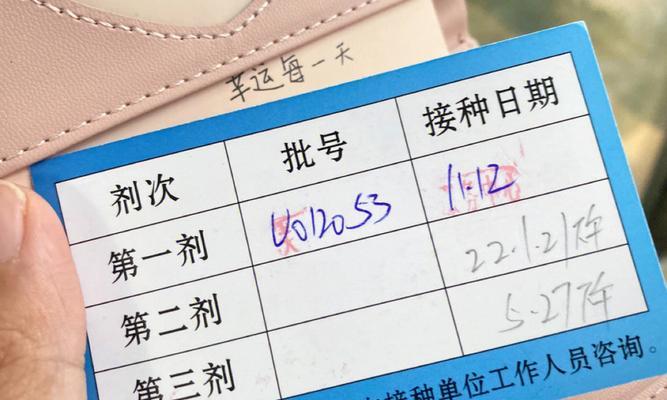 幸运每一天
剂次 批号 接种日期
第一剂 U012053 11.12
第二剂 22.1.21
第三剂 5.27
接种单位工作人员咨询。